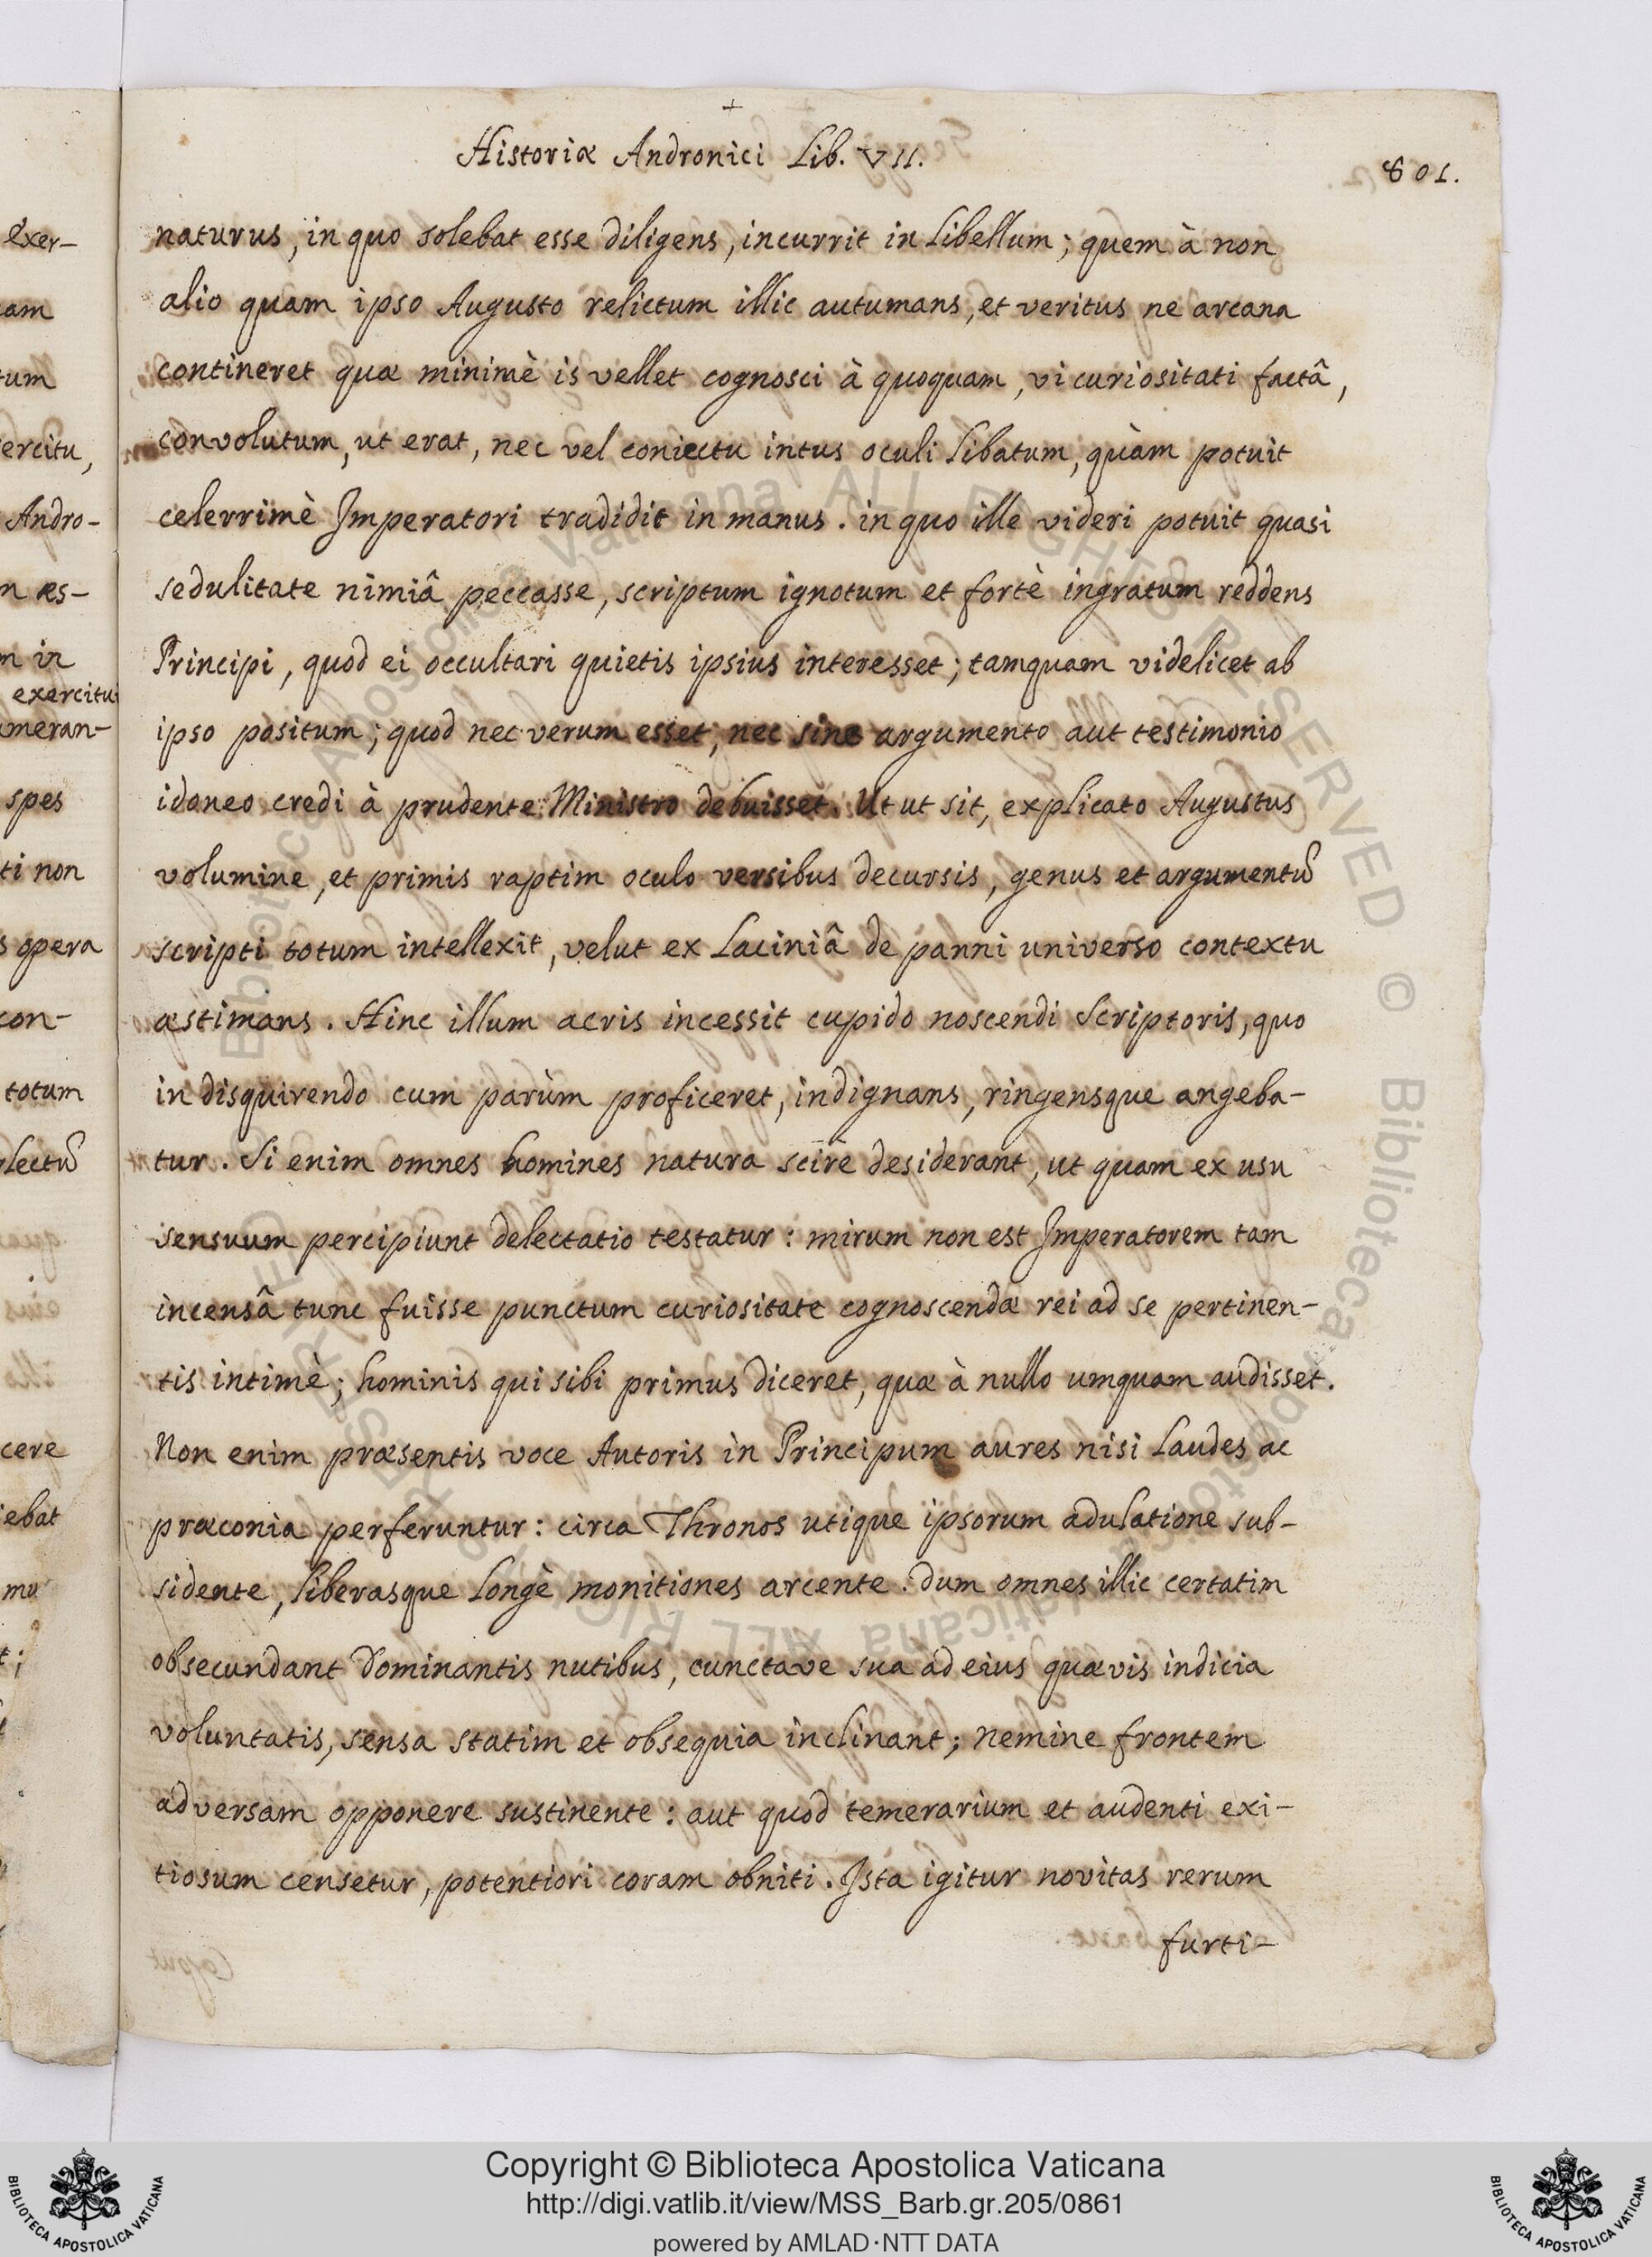 +
Historiæ Andronici Lib. VII.
801.
naturus, in quo solebat esse diligens, incurrit in Libellum; quem à non
alio quam ipso Augusto relictum illic autumans, et veritus ne arcana
contineret quæ minimè is vellet cognosci à quoquam, vi curiositati factâ,
convolutum, ut erat, nec vel coniectu intus oculi libatum, quàm potuit
celerrimè Imperatori tradidit in manus. in quo ille videri potuit quasi
sedulitate nimiâ peccasse, scriptum ignotum et fortè ingratum reddens
Principi, quod ei occultari quietis ipsius interesset; tamquam videlicet ab
ipso positum; quod nec verum esset, nec sine argumento aut testimonio
idoneo credi à prudente Ministro debuisset. Ut ut sit, explicato Augustus
volumine, et primis raptim oculo versibus decursis, genus et argumentũ
scripti totum intellexit, velut ex Laciniâ de panni universo contextu
æstimans. Hinc illum acris incessit cupido noscendi Scriptoris, quo
in disquirendo cum parùm proficeret, indignans, ringensque angeba-
tur. Si enim omnes homines natura scire desiderant, ut quam ex usu
sensuum percipiunt delectatio testatur: mirum non est Imperatorem tam
incensâ tunc fuisse punctum curiositate cognoscendæ rei ad se pertinen-
tis intimè; hominis qui sibi primus diceret, quæ à nullo umquam audisset.
Non enim præsentis voce Autoris in Principum aures nisi Laudes ac
præconia perferuntur: circa Thronos utique ipsorum adulatione sub-
sidente, liberasque longè monitiones arcente. dum omnes illic certatim
obsecundant Dominantis nutibus, cunctave sua ad eius quævis indicia
voluntatis, sensa statim et obsequia inclinant; nemine frontem
adversam opponere sustinente: aut quod temerarium et audenti exi-
tiosum censetur, potentiori coram obniti. Ista igitur novitas rerum
furti-
exer-
ercitu,
Andro-
exercitui
meran-
spes
ti non
opera
con-
totum
lectũ
cere
ebat
Copyright © Biblioteca Apostolica Vaticana
http://digi.vatlib.it/view/MSS_Barb.gr.205/0861
powered by AMLAD·NTT DATA
BIBLIOTECA APOSTOLICA VATICANA
BIBLIOTECA APOSTOLICA VATICANA